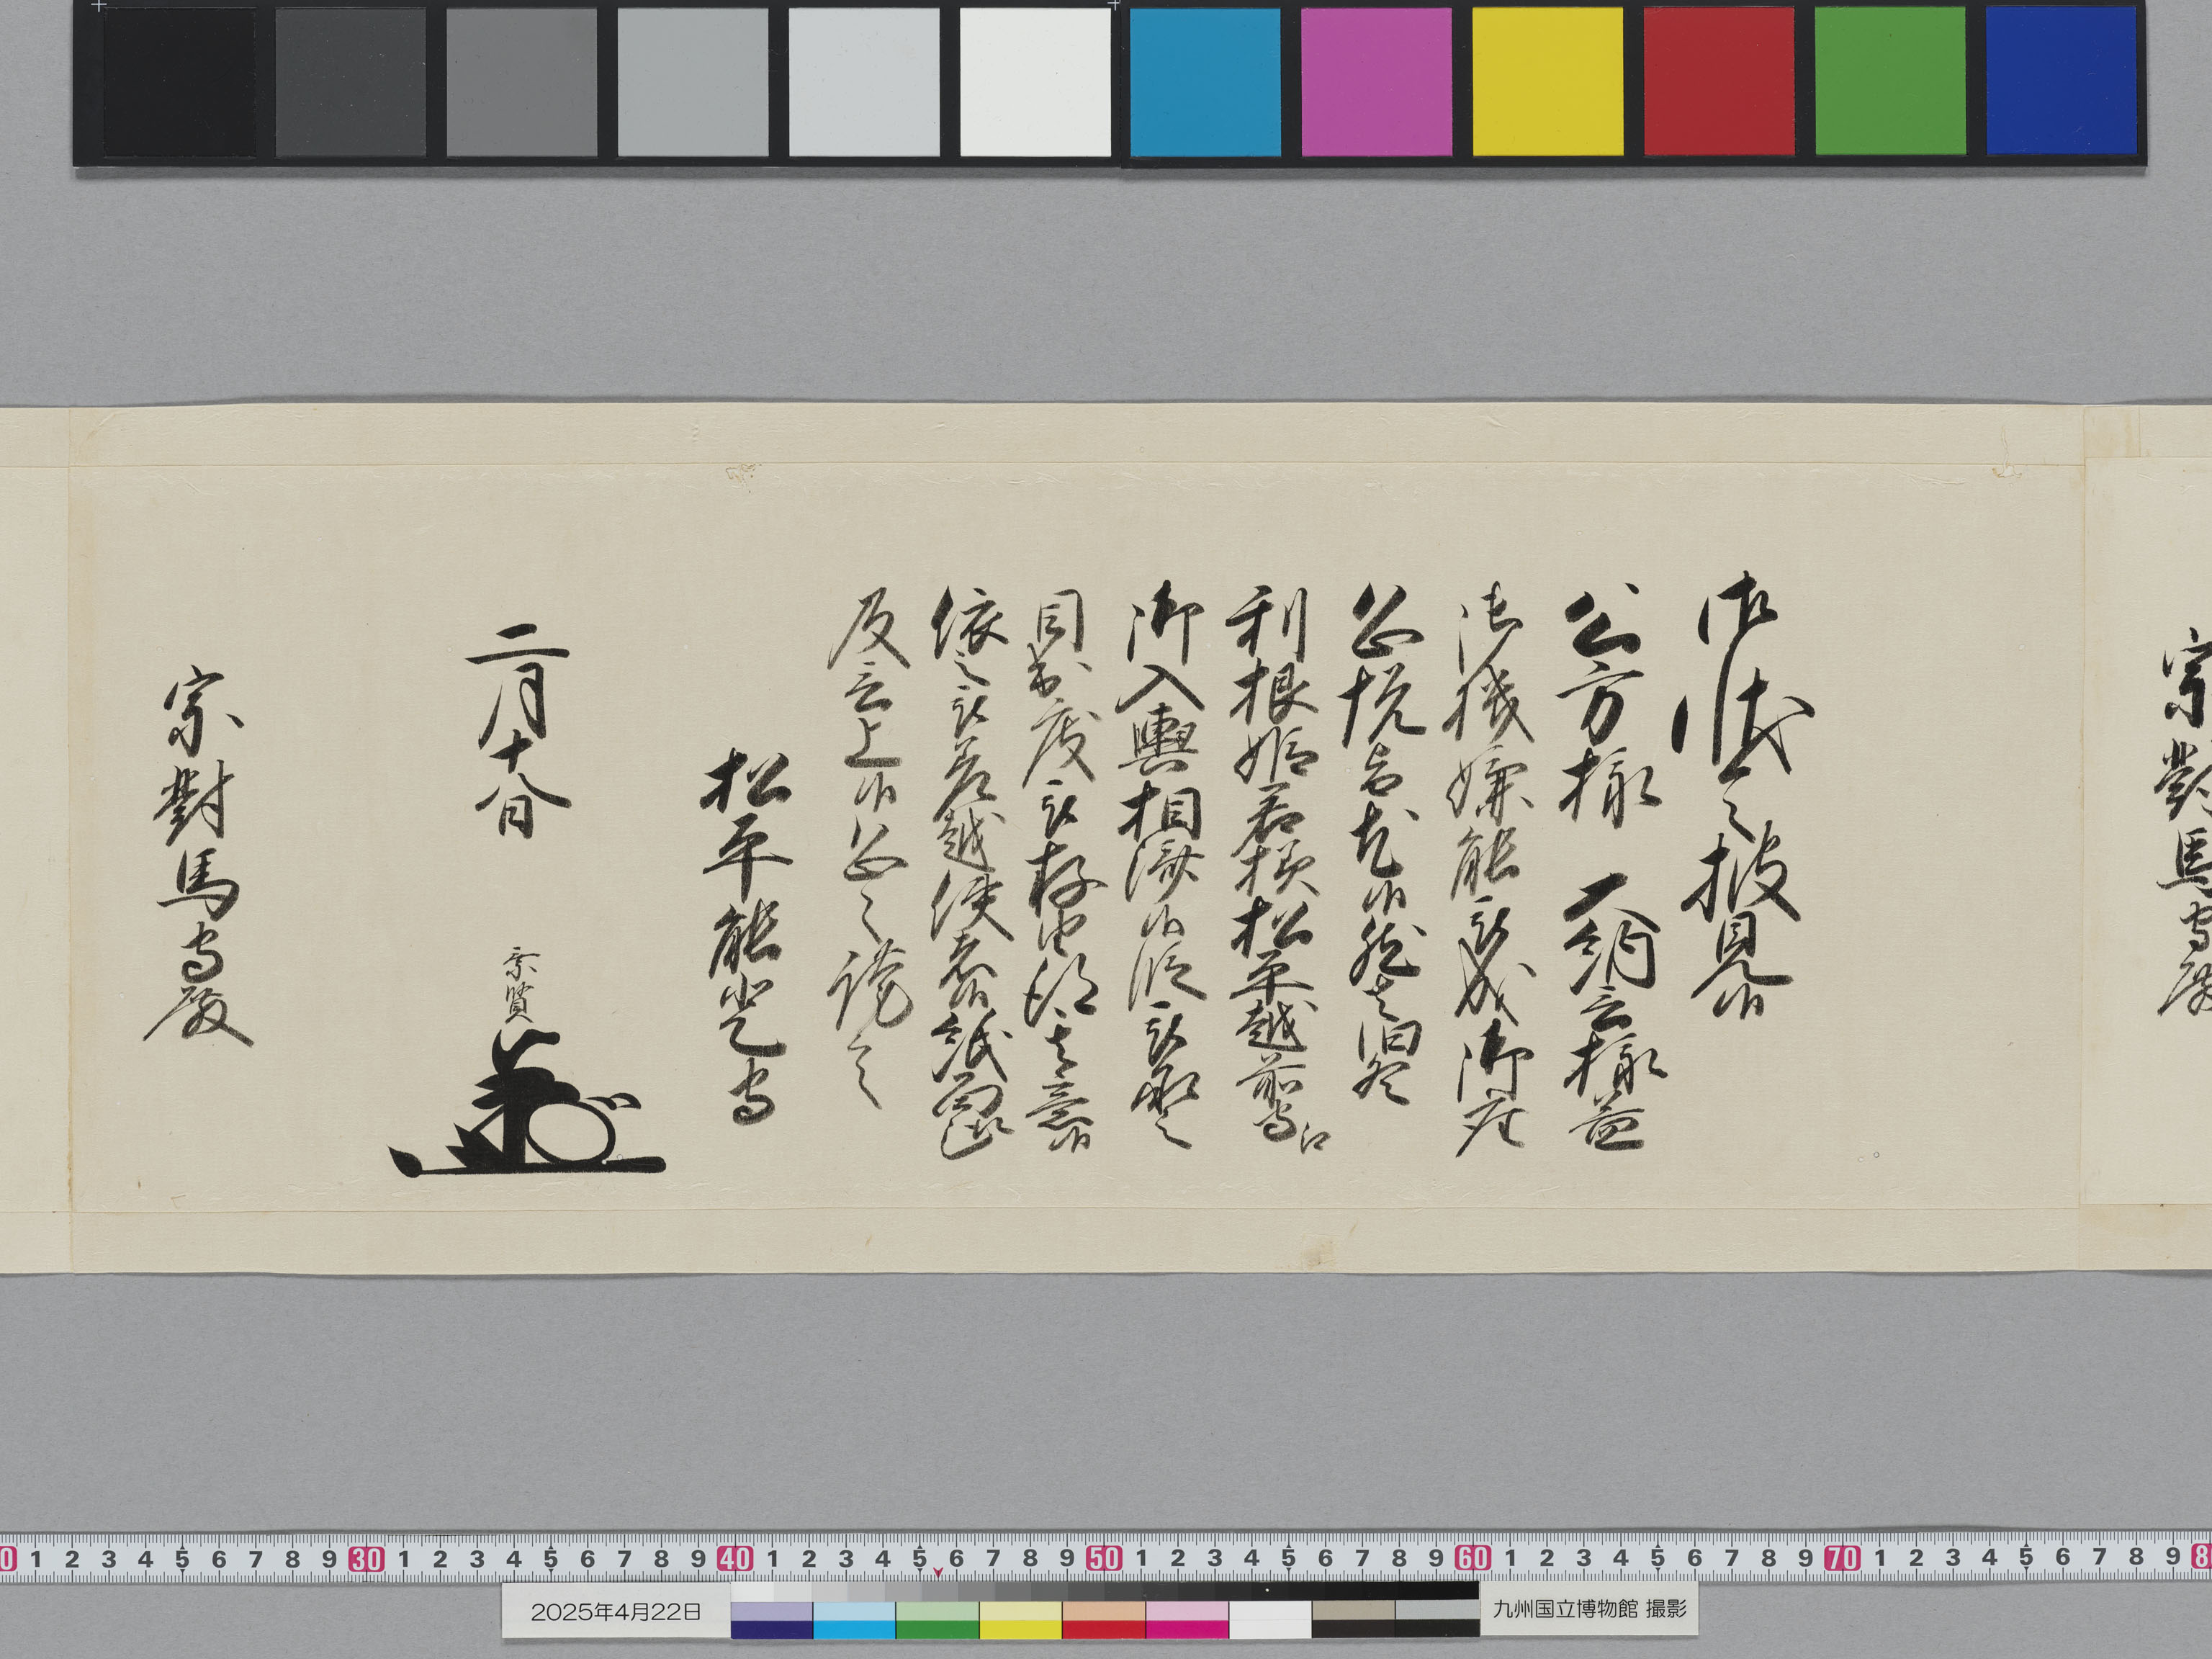 宗對馬守殿
御状令披見候
公方様 大納言様益
御機嫌能被成御座
恐悦旨尤候然者旧冬
利根姫君様松平越前守江
御入輿相済候段被承之
目出度被存由得其意候
依之被差越使者候紙面趣
及言上候恐々謹言
松平能登守
二月十八日 乗賢
宗對馬守殿
0 1 2 3 4 5 6 7 8 9 30 1 2 3 4 5 6 7 8 9 40 1 2 3 4 5 6 7 8 9 50 1 2 3 4 5 6 7 8 9 60 1 2 3 4 5 6 7 8 9 70 1 2 3 4 5 6 7 8 9 8
2025年4月22日
九州国立博物館 撮影